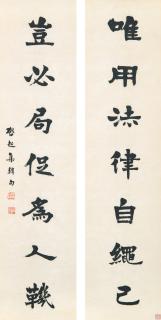 唯用法律自繩己
豈必局促爲人鞿
啟超集韓句